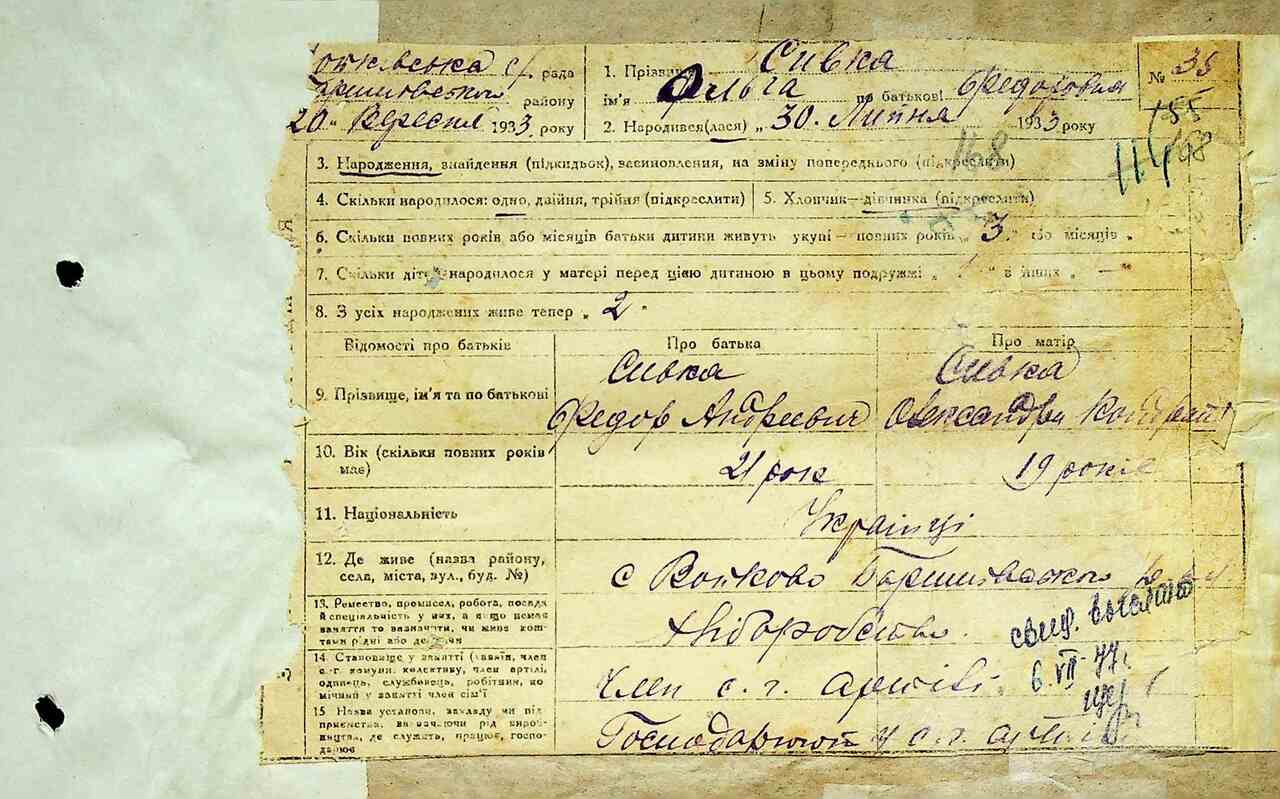 с/. рада
району
20 " Вересня 1933 року
1. Прізвище Сивка
ім'я Ольга по батькові Федоровна
2. Народився(лася) „ 30. Липня 1933 року
№ 35
168
3. Народження, знайдення (підкидьок), всиновлення, на зміну попереднього (підкреслити)
4. Скільки народилося: одно, двійня, трійня (підкреслити)
5. Хлопчик—дівчинка (підкреслити)
6. Скільки повних років або місяців батьки дитини живуть укупі — повних років „ 3. або місяців „
7. Скільки дітей народилося у матері перед цією дитиною в цьому подружжі „ " в інших „ —
8. З усіх народжених живе тепер „ 2 "
Відомості про батьків
Про батька
Про матір
9. Прізвище, ім'я та по батькові
Сивка
Федор Андреевич
Сивка
Олександра
10. Вік (скільки повних років має)
21 рок
19 років
11. Національність
Українці
12. Де живе (назва району,
села, міста, вул., буд. №)
с
13. Ремество, промисел, робота, посада
й спеціальність у них, а якщо немає
заняття то визначити, чи живе кош-
тами рідні або держави
Хліборобство
14. Становище у занятті (хазяїн, член
с.-г. комуни, колективу, член артілі,
одинець, службовець, робітник, по
мічний у занятті член сім'ї
Член с. г. артілі
6. VII-77г
15 Назва установи, закладу чи під
приємства, визначаючи рід вироб-
ництва, де служить, працює, госпо-
дарює
Господарюют у с. г. артілі